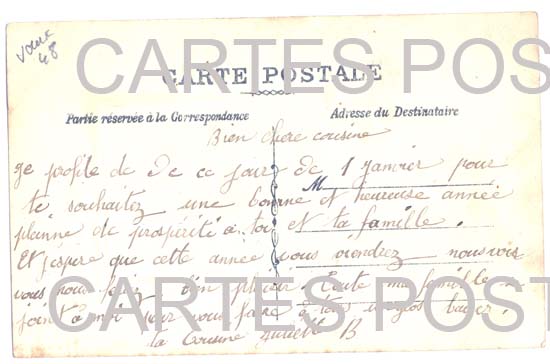 CARTES POS
CARTE POSTALE
Partie réservée à la Correspondance
Adresse du Destinataire
Bien chere cousine
je profite de De ce jour de 1 janvier pour
M
te souhaitez une bonne et heureuse année
pleinne de prospérité a toi et ta famille.
Et j'espère que cette année vous viendrez nous voir
vous nous plaisir. Toute ma famille
joint à moi pour vous faire à tous
CARTES POS
ta Cousine B